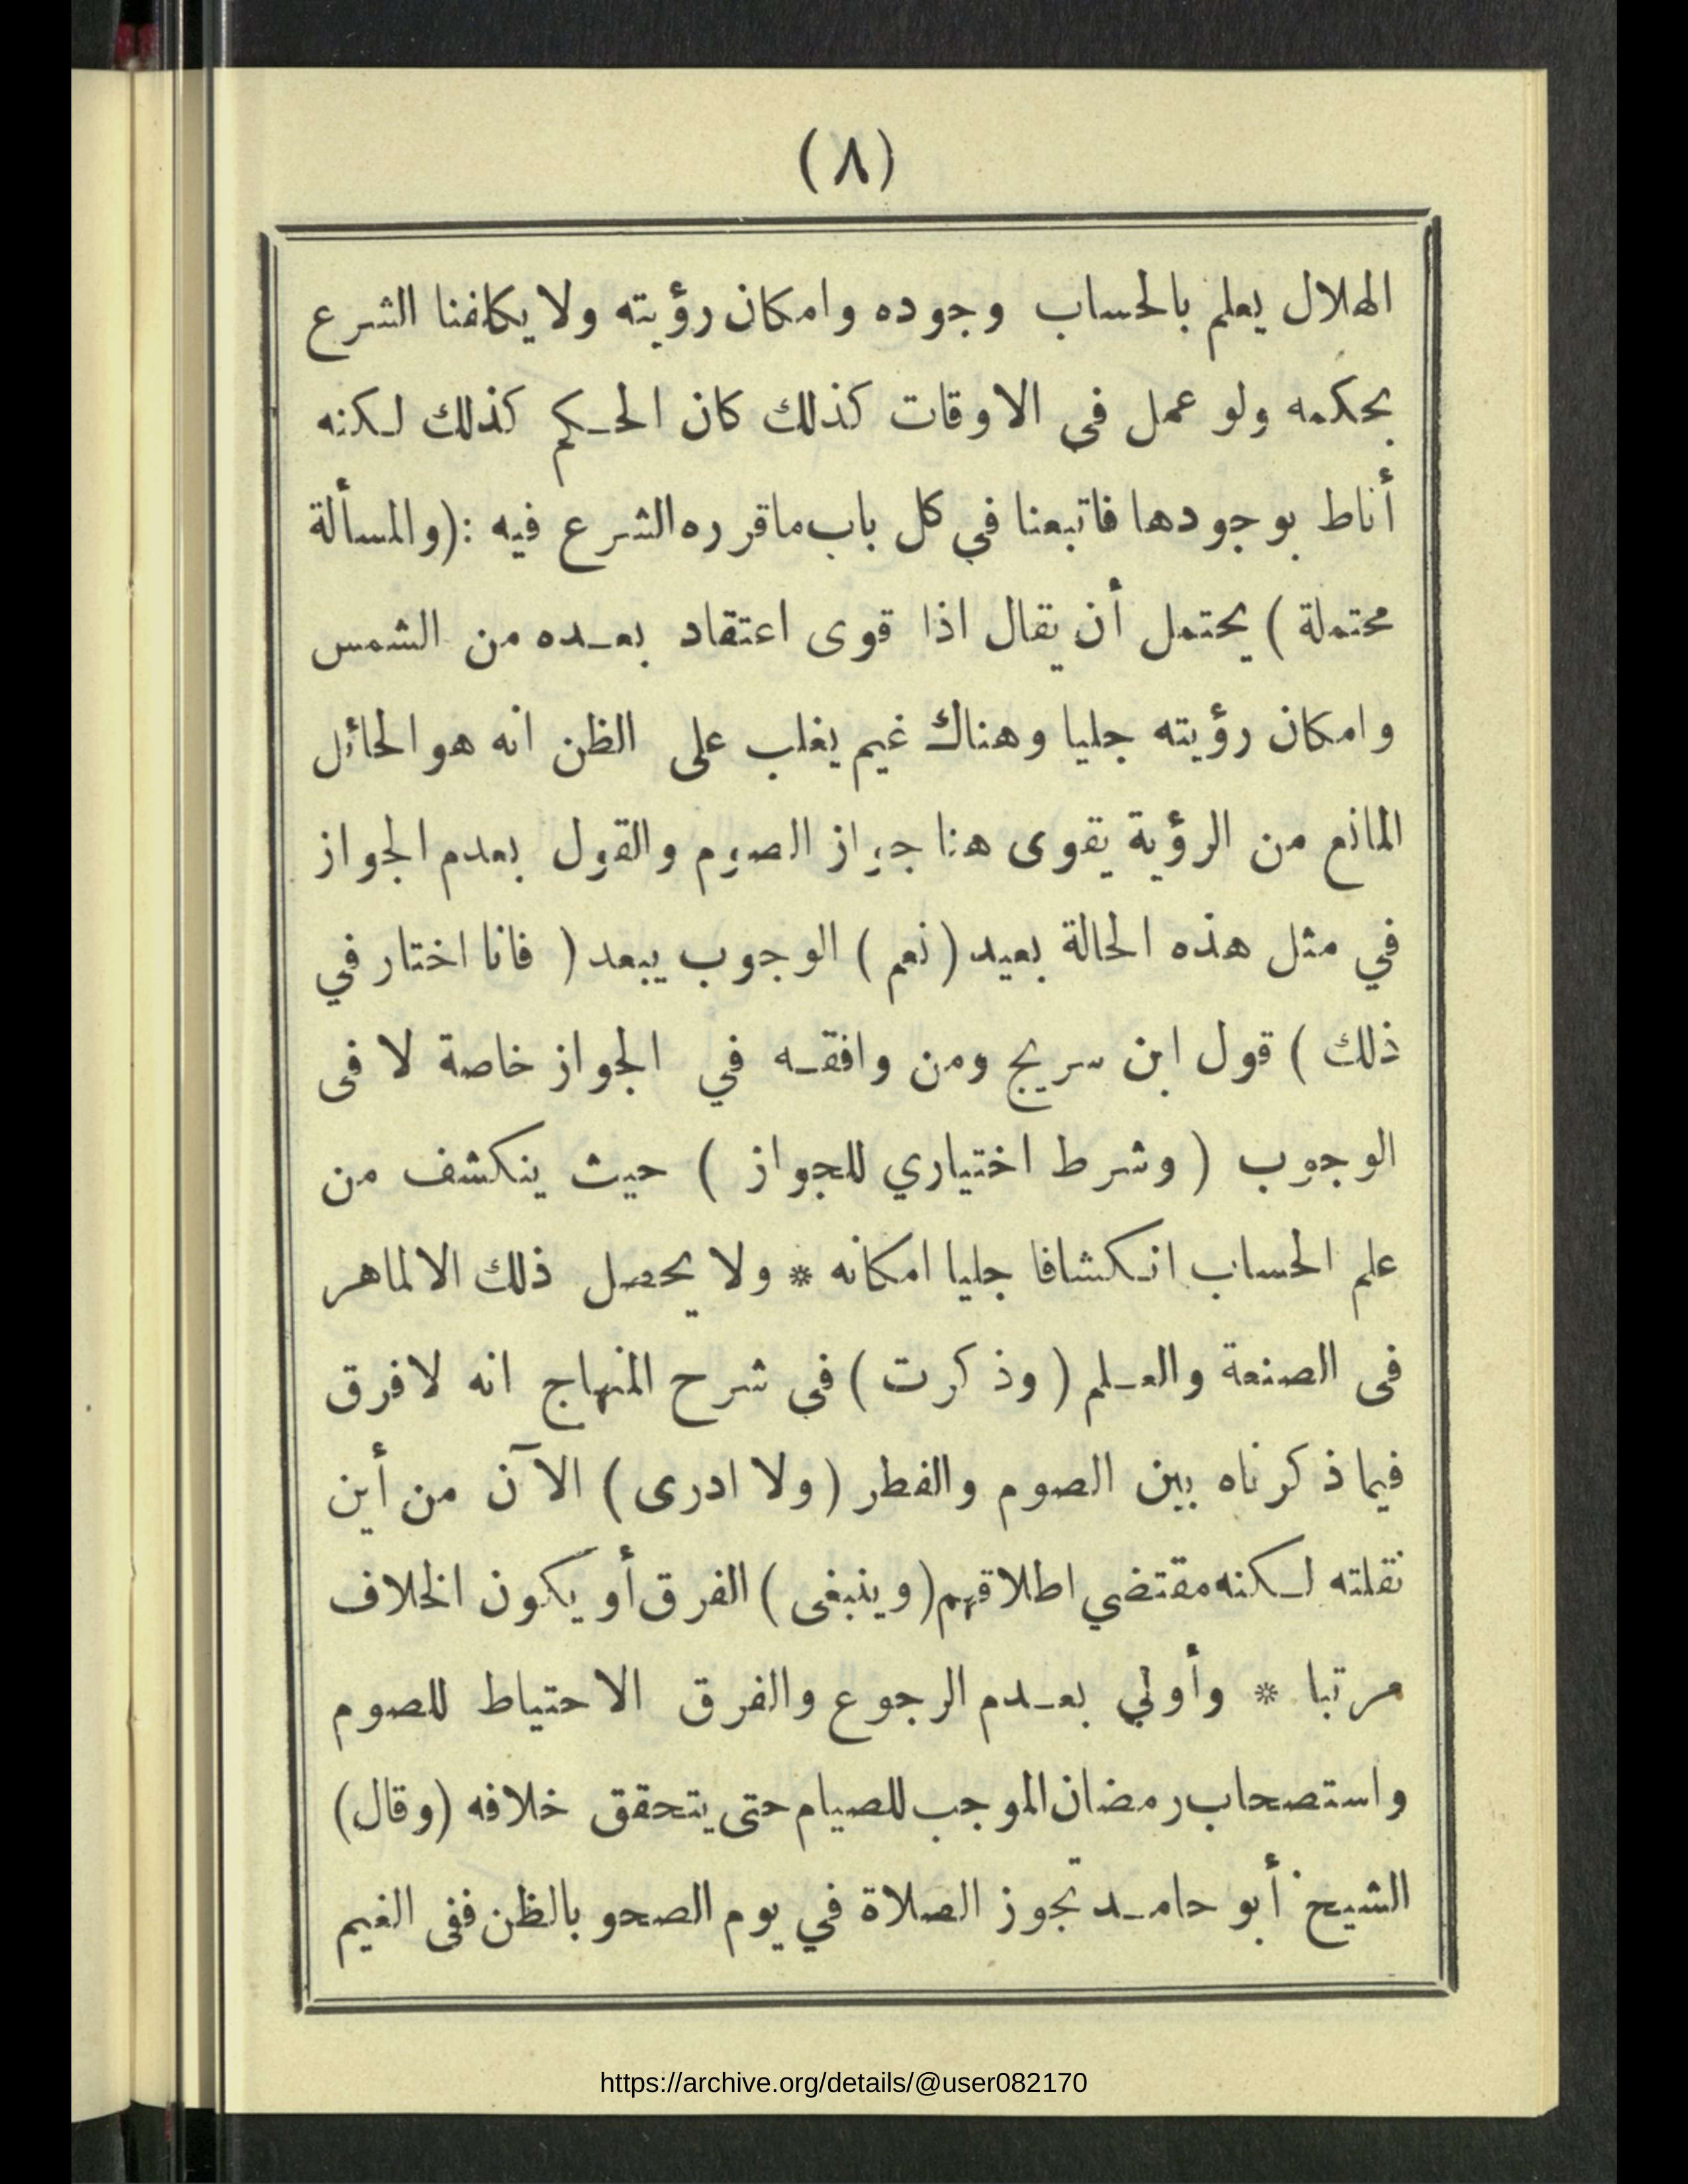 (٨)
الهلال يعلم بالحساب وجوده وامكان رؤيته ولا يكافنا الشرع
بحكمه ولو عمل فى الاوقات كذلك كان الحكم كذلك لكنه
أناط بوجودها فاتبعنا في كل باب ماقرره الشرع فيه :(والمسألة
محتملة ) يحتمل أن يقال اذا قوى اعتقاد بعده من الشمس
وامكان رؤيته جليا وهناك غيم يغلب على الظن انه هو الحائل
المانع من الرؤية يقوى هنا جواز الصوم والقول بعدم الجواز
في مثل هذه الحالة بعيد (نعم ) الوجوب يبعد ( فانا اختار في
ذلك ) قول ابن سريج ومن وافقه في الجواز خاصة لا فى
الوجوب ( وشرط اختياري للجواز ) حيث ينكشف من
علم الحساب انكشافا جليا امكانه * ولا يحصل ذلك الا لماهر
فى الصنعة والعلم ( وذكرت ) في شرح المنهاج انه لا فرق
فيما ذكرناه بين الصوم والفطر (ولا ادرى ) الآن من أين
نقلته لكنه مقتضي اطلاقهم (وينبغى ) الفرق أو يكون الخلاف
مرتبا * وأولي بعدم الرجوع والفرق الاحتياط للصوم
واستصحاب رمضان الموجب للصيام حتى يتحقق خلافه (وقال)
الشيخ أبو حامد تجوز الصلاة في يوم الصحو بالظن ففى الغيم
https://archive.org/details/@user082170